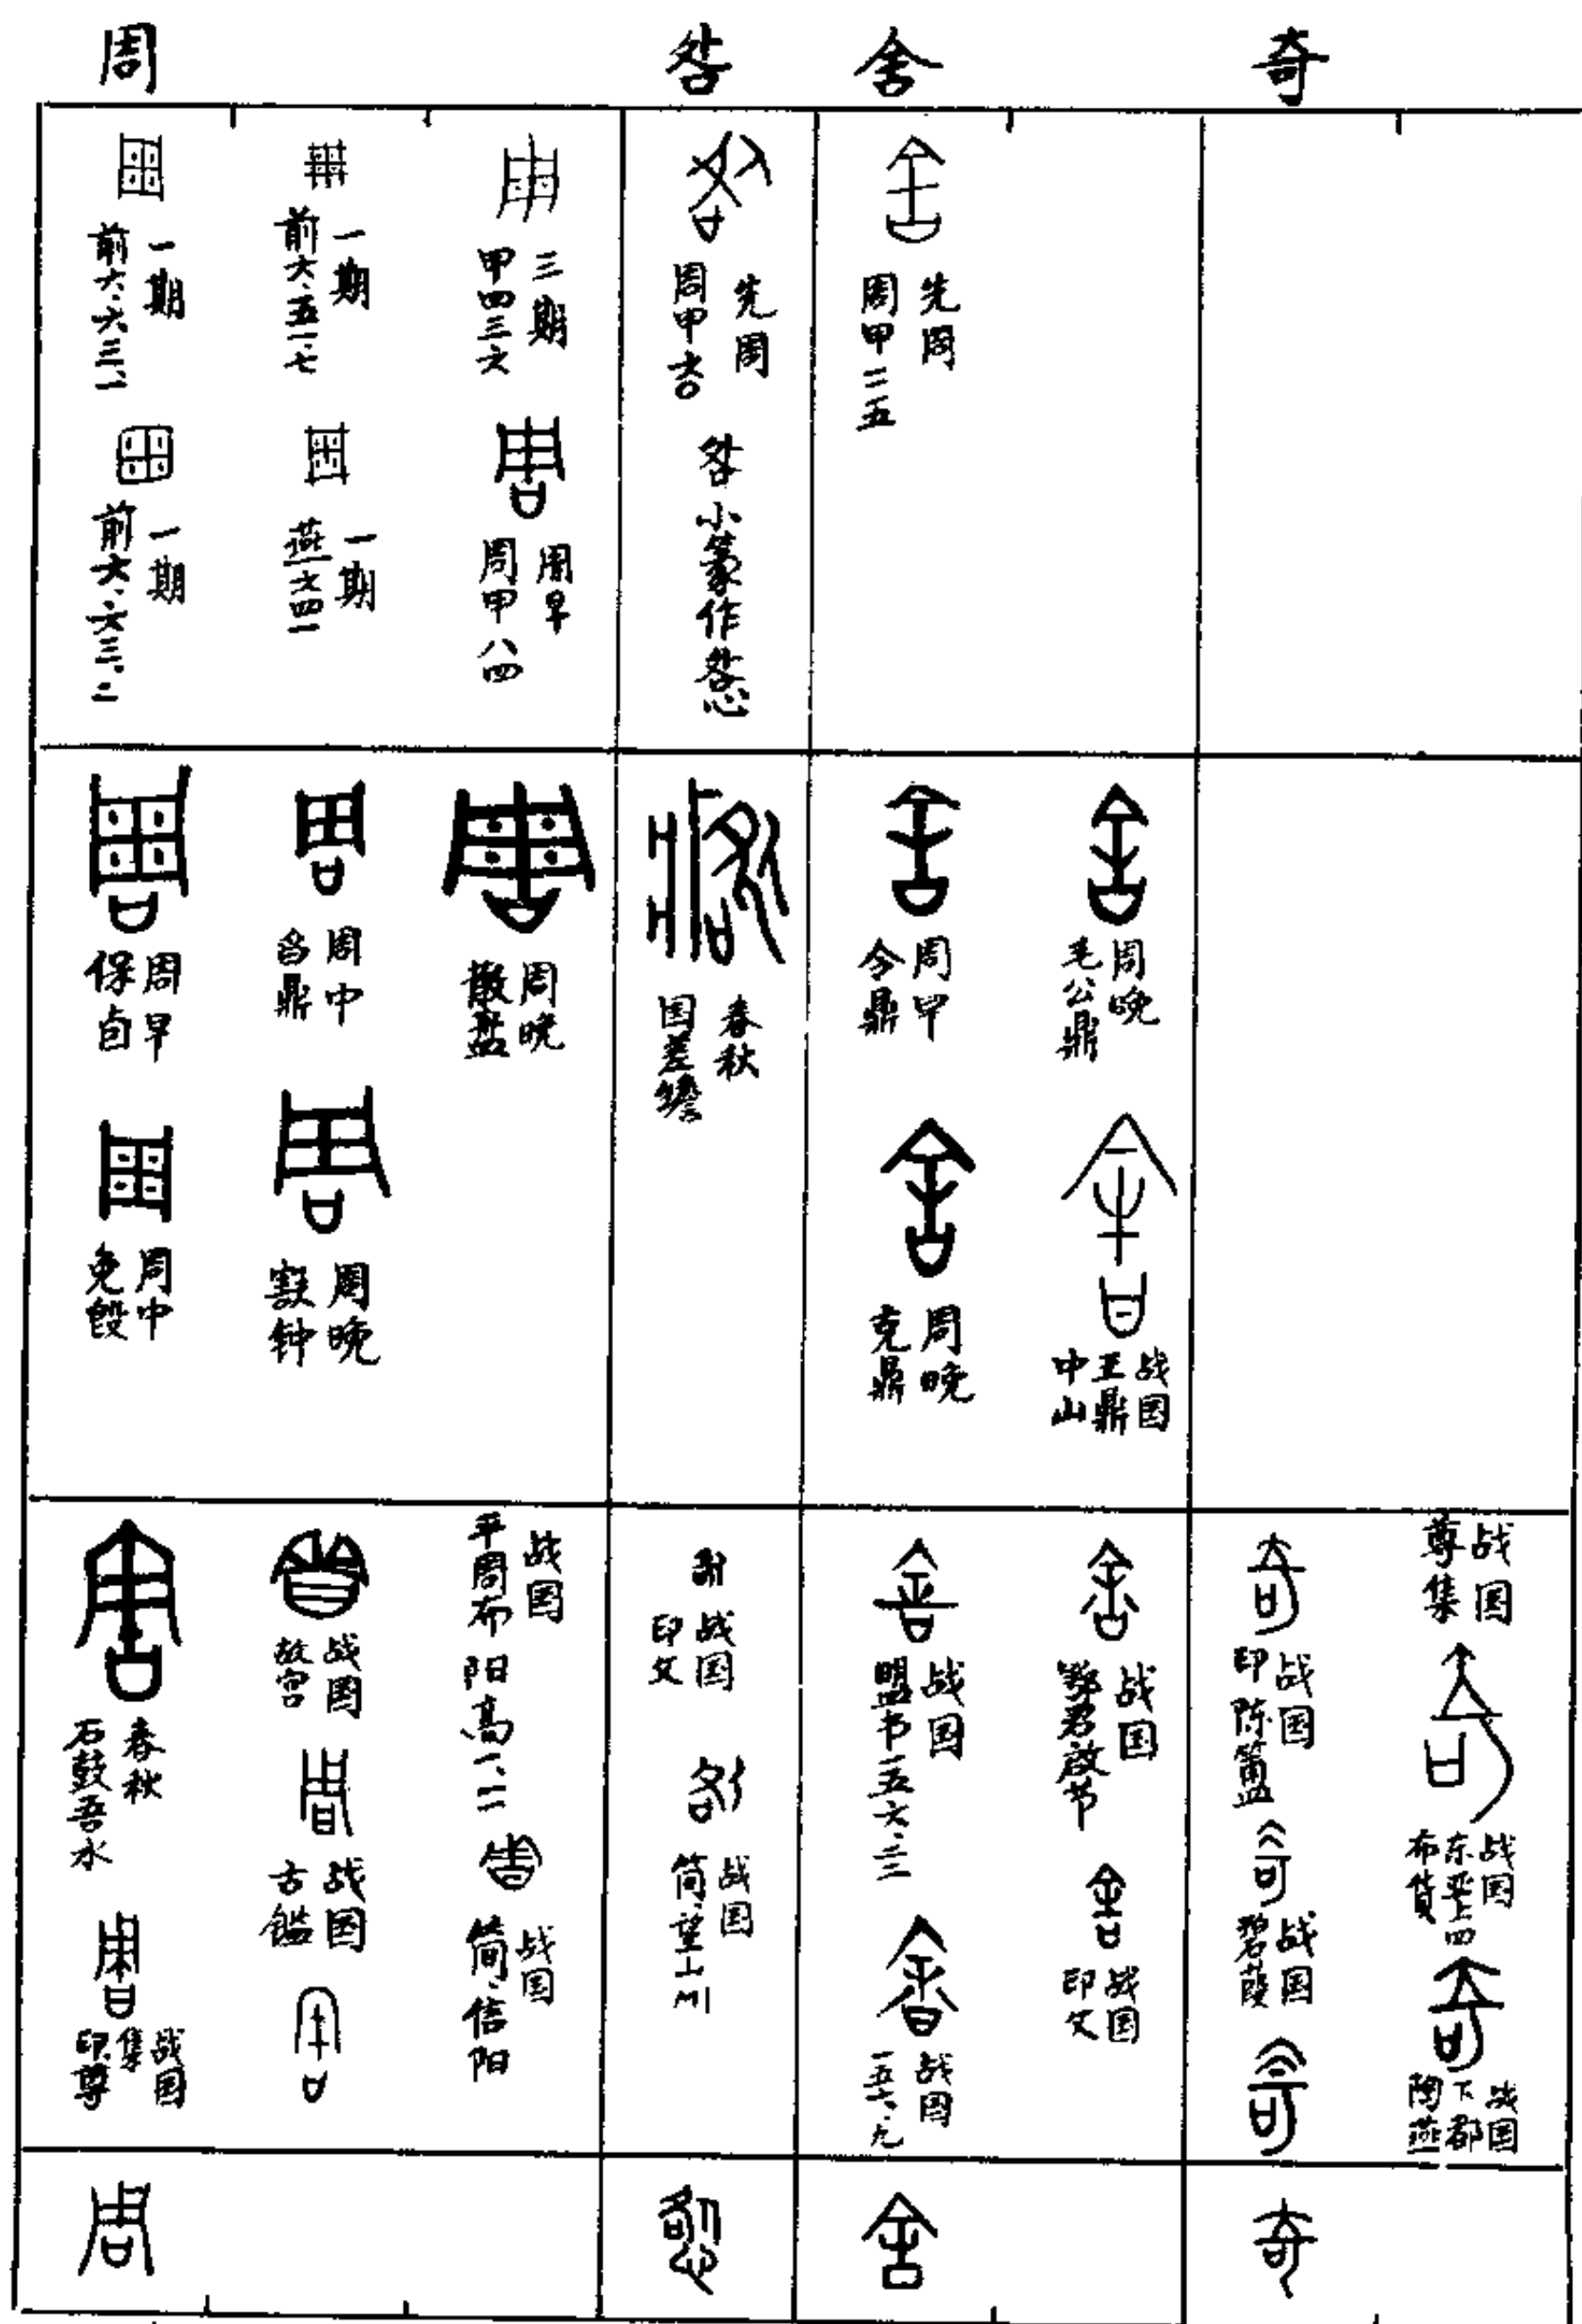 周
咎
舍
奇
一期
前六·六三·一
一期
前六·六三·二
一期
前六·五一·七
一期
燕六四一
三期
甲四三六
周早
周甲八四
先周
周甲六〇
咎小篆作
先周
周甲二五
周早
保卣
周中
免𣪘
周中
曶鼎
周晚
㝬钟
周晚
散盘
春秋
国差𦉜
周早
令鼎
周晚
克鼎
周晚
毛公鼎
战国
中山王鼎
春秋
石鼓吾水
战国
印尊集
战国
故宫
战国
古鉴
战国
平周布阳高一、二
战国
简·信阳
战国
印文
战国
简·望
战国
盟书一五六·三
战国
一五六·九
战国
鄂君启节
战国
印文
战国
印陈簠
战国
碧葭
战国
尊集
战国
布货东亚上四
战国
陶燕下都
周
舍
奇